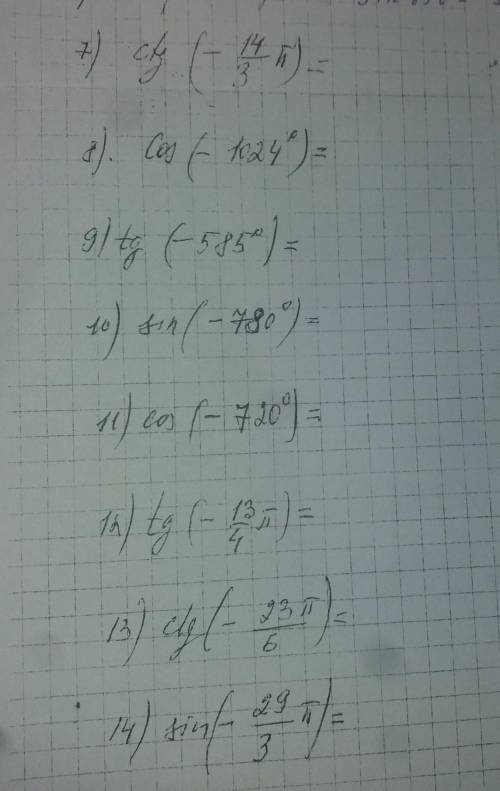 7) ctg (- 14/3 π) =
8). cos (- 1024°) =
9) tg (- 585°) =
10) sin (- 780°) =
11) cos (- 720°) =
12) tg (- 13/4 π) =
13) ctg (- 23π/6) =
14) sin (- 29/3 π) =